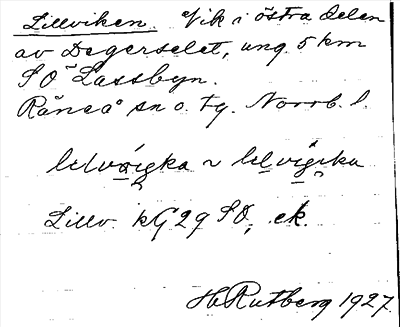 Lillviken. Vik i östra delen
av Degerselet, ung. 5 km
SO Lassbyn.
Råneå sn o. tg. Norrb. l.
lilvąi̯gka ~ lilvi̯gka
Lillv. kG 29 SO, ek.
H Rutberg 1927.